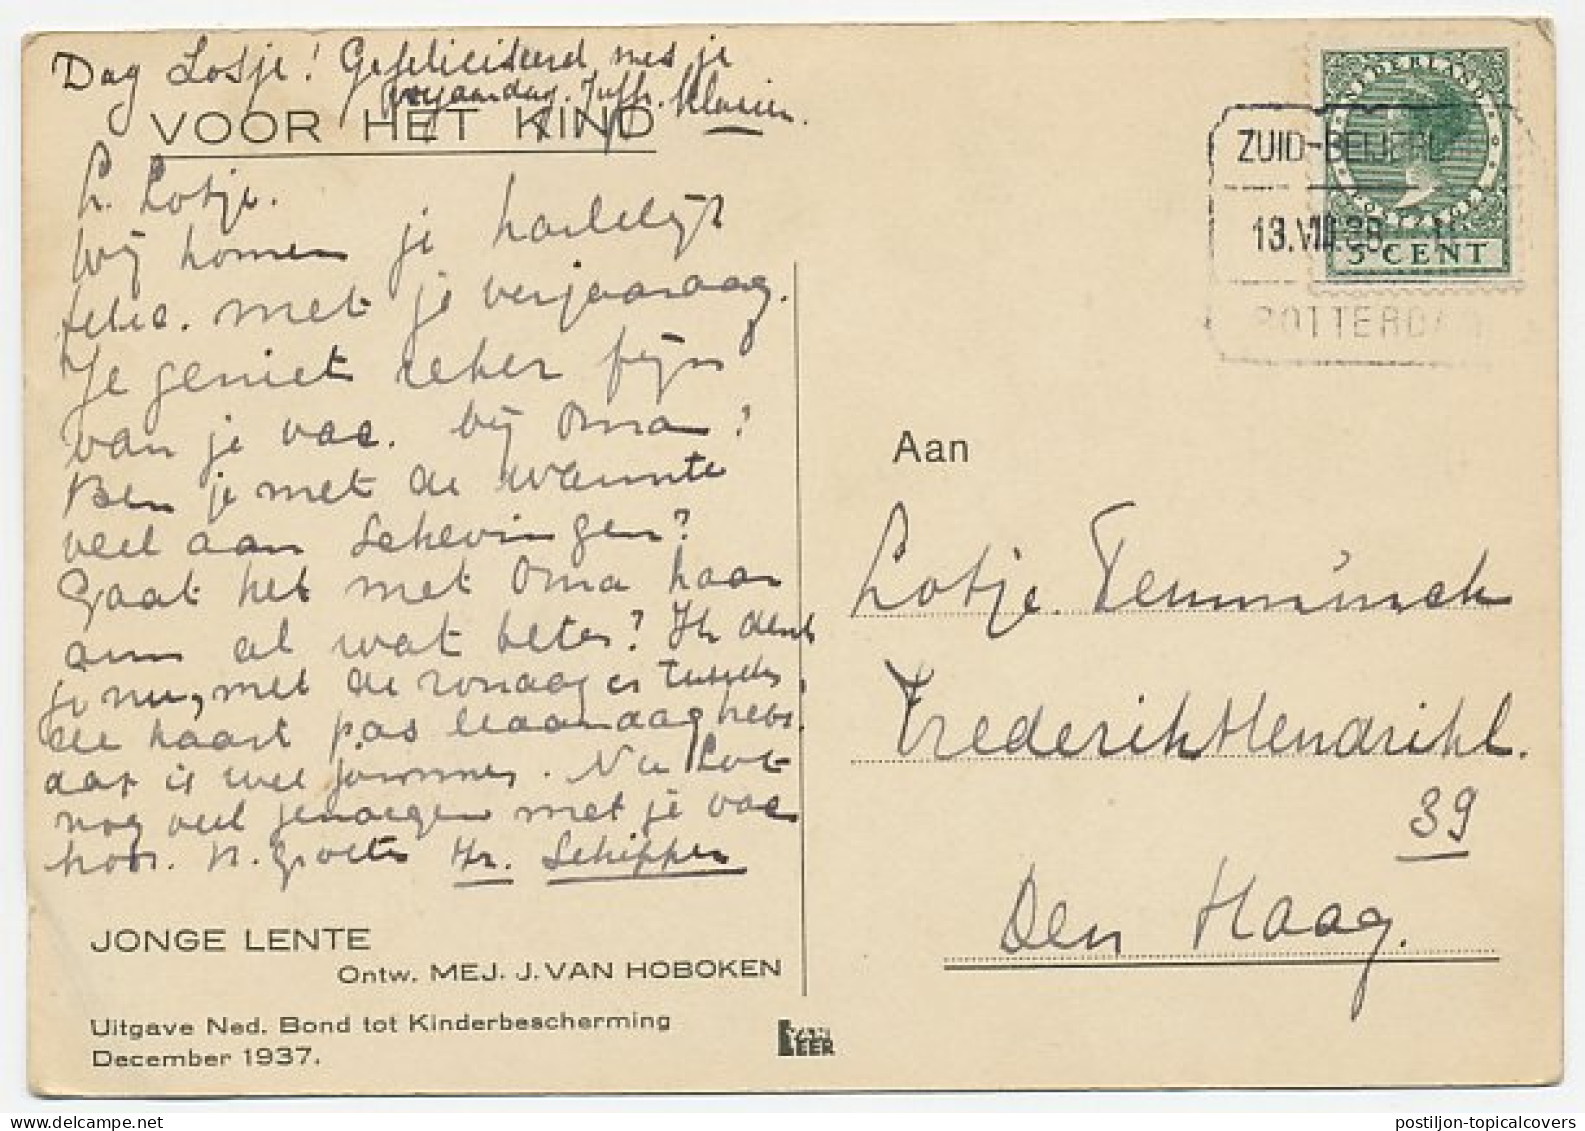 Dag Lotje! Gefeliciteerd met je
verjaardag. Juffr.
VOOR HET KIND
L. Lotje.
Wij komen je hartelijk
felic. met je verjaardag.
Je geniet zeker fijn
van je vac. bij Oma?
Ben je met de warmte
veel aan Schevingen?
Gaat het met Oma haar
arm al wat beter? Ik denk
je nu, met de zondag er tusschen
een kaart pas Maandag hebt.
dat is wel jammer. Nu Lot
nog veel genoegen met je vac
hoor. H. Groeten Hr. Schipper
JONGE LENTE
Ontw. MEJ. J. VAN HOBOKEN
Uitgave Ned. Bond tot Kinderbescherming
December 1937.
VAN
LEER
NEDERLAND
5 CENT
ZUID-BEIJERL
13.VIII.38
ROTTERDA
Aan
Lotje Temminck
Frederik Hendrikl.
39
Den Haag.
postiljon-topicalcovers